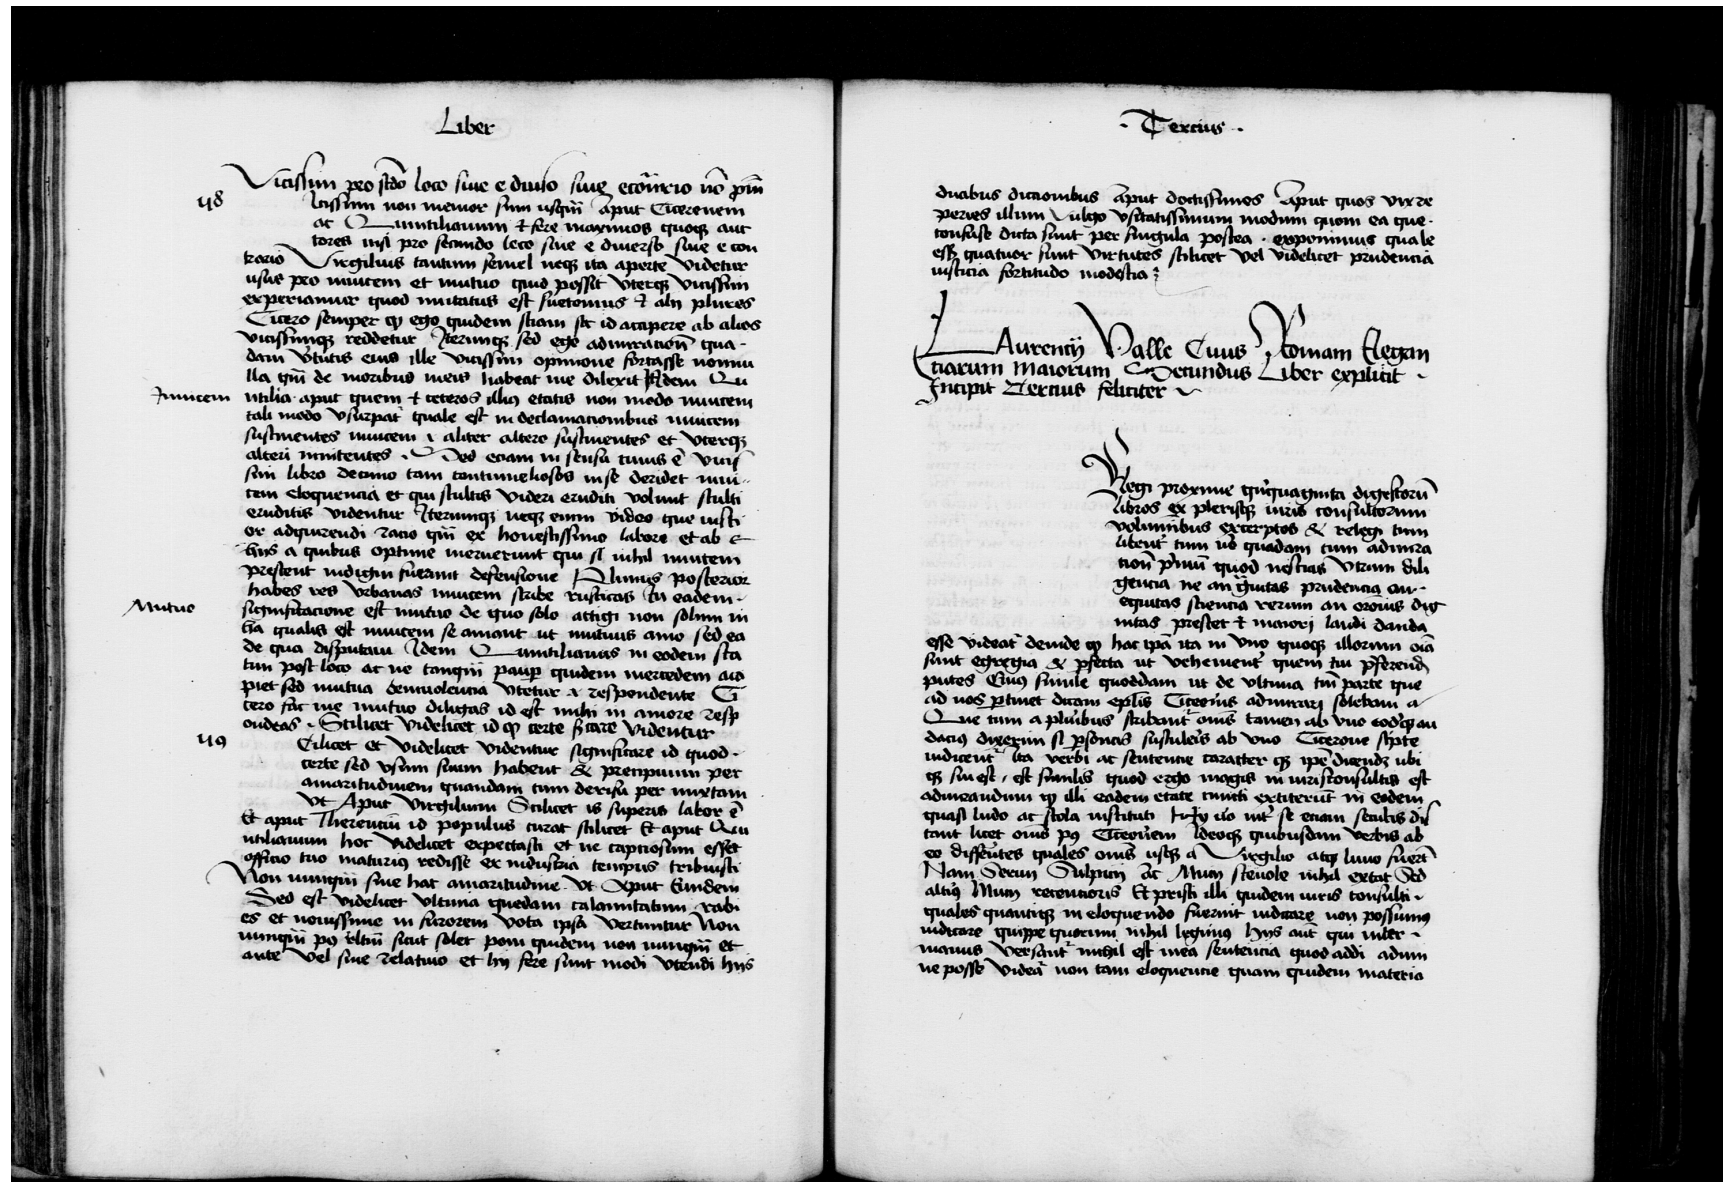 Liber
Vicissim pro scdo loco siue e diuso siue econtrario no prim
58
icissim non memor sum usqm aput Ciceronem
ac Quintilianum et fere maximos quosq auc
tores nisi pro secundo loco siue e diuerso siue e con
trario Virgilius tantum semel neq ita aperte videtur
usus pro inuicem et mutuo quid possit vterq vicissim
experiamur quod imitatus est suetonius et alij plures
Cicero semper q ego quidem sciam sic id accipere ab alios
vicissimq reddetur Iterumq sed ego admiracion qua-
dam vtutis eius ille vicissim opinione fortasse nonnu
lla qm de moribus meis habeat me dilexit Idem Qu
Inuicem
ntilia aput quem et ceteros illius etatis non modo inuicem
tali modo vsurpat quale est in declamacionibus inuicem
sustinentes inuicem i aliter altero sustinentes et vterq
alteri innitentes . Sed eciam in sensu cuius e vicis
sim libro decimo tam contumeliosos in se deridet inui-
cem eloquencia et qui stultis videri eruditi volunt stulti
eruditis videntur Iterumq neq enim video que iusti
or adquirendi racio qm ex honestissimo labore et ab
hijs a quibus optime meruerunt qui si nihil inuicem
prestent indigni fuerint defensione Plinius posterior
habes res vrbanas inuicem scribe rusticas In eadem-
Mutuo
significacione est mutuo de quo solo attigi non solum in
ea qualis est inuicem se amant ut mutuus amo sed ea
de qua disputaui Idem Quintilianus in eodem sta
tim post loco ac ne tanqm paup quidem mercedem acci
piet sed mutua beniuolencia vtetur i respondente Ci
cero fac me mutuo diligas id est mihi in amore resp
ondeas . Scilicet videlicet id q certe sicare videntur
59
Cilicet et videlicet videntur significare id quod-
certe sed vsum suum habent & precipuum per
amaritudinem quandam cum derisu per mixtam
Vt Aput Virgilium Scilicet is superis labor e
Et aput Therentiu id populus curat scilicet Et aput Qui
ntilianum hoc videlicet expectasti et ne captiosum esset
officio tuo maturius redisse ex industria tempus tribuisti
Non nunqm siue hac amaritudine. Vt Aput Eundem
Sed est videlicet vltima quedam calamitatum rabi
es et nouissime in furorem vota ipsa vertuntur Non
nunqm ps sicut solet poni quidem non nunqm et
ante vel siue relatiuo et hij fere sunt modi vtendi hijs
· Tercius ·
duabus diccionibus aput doctissimos Aput quos vix re
peries illum vulgo vsitatissimum modum quom ea que-
confuse dicta sunt per singula postea . exponimus quale
esse quatuor sunt virtutes scilicet vel videlicet prudencia
iusticia fortitudo modestia
LAurencij Valle Ciuis Romam Elegan
tiarum maiorum Secundus Liber explicit -
Incipit Tercius feliciter
PEregi proxime qnquaginta digestoru
libros ex plerisq iuris consultorum
voluminibus excerptos & relegi cum
libent tum vo quadam cum admira
tion pimum quod nescias vtrum dili
gencia ne an grauitas prudencia an-
equitas sciencia rerum an oronis dig
nitas prestet et maiori laudi danda
esse videat deinde q hac ipa ita in vno quoq illorum oia
sunt egregia & pfecta ut vehement quem cui pferend
putes Cuius simile quoddam ut de vltima tm parte que
ad nos ptinet dicam eplis Ciceronis admirari solebam
Que cum a pluribus scribant omis tamen ab vno eodeq au
dacius dixerim si psonas sustuleris ab vno Cicerone scpte
iudicent Ita verbi ac sentencie caracter q ipe dicendi ubi
q sui est, est similis quod ergo magis in iurisconsultis est
admirandum q illi eadem etate cuncti extiterunt in eodem
quasi ludo ac scola instituti Hij vo int se eciam seculis dis
tant licet omis ps Ciceronem Ideoq quibusdam verbis ab
eo differentes quales omis usq a Virgilio atq liuio fuert
Nam Seruij Sulpicij Ac Mucij sceuole nihil extat Sed
altius Mucij recentioris Et prisci illi quidem iuris consulti-
quales quantiq in eloquendo fuerint iudicare non possumus
iudicare quippe quorum nihil legimus Hijs aut qui inter-
manus versant nihil est mea sentencia quod addi adimi
ne posse videat non tam eloquencie quam quidem materia